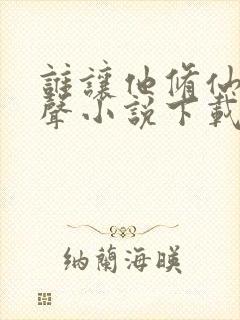 誰讓他脩仙
聲小說下載
納蘭海暎